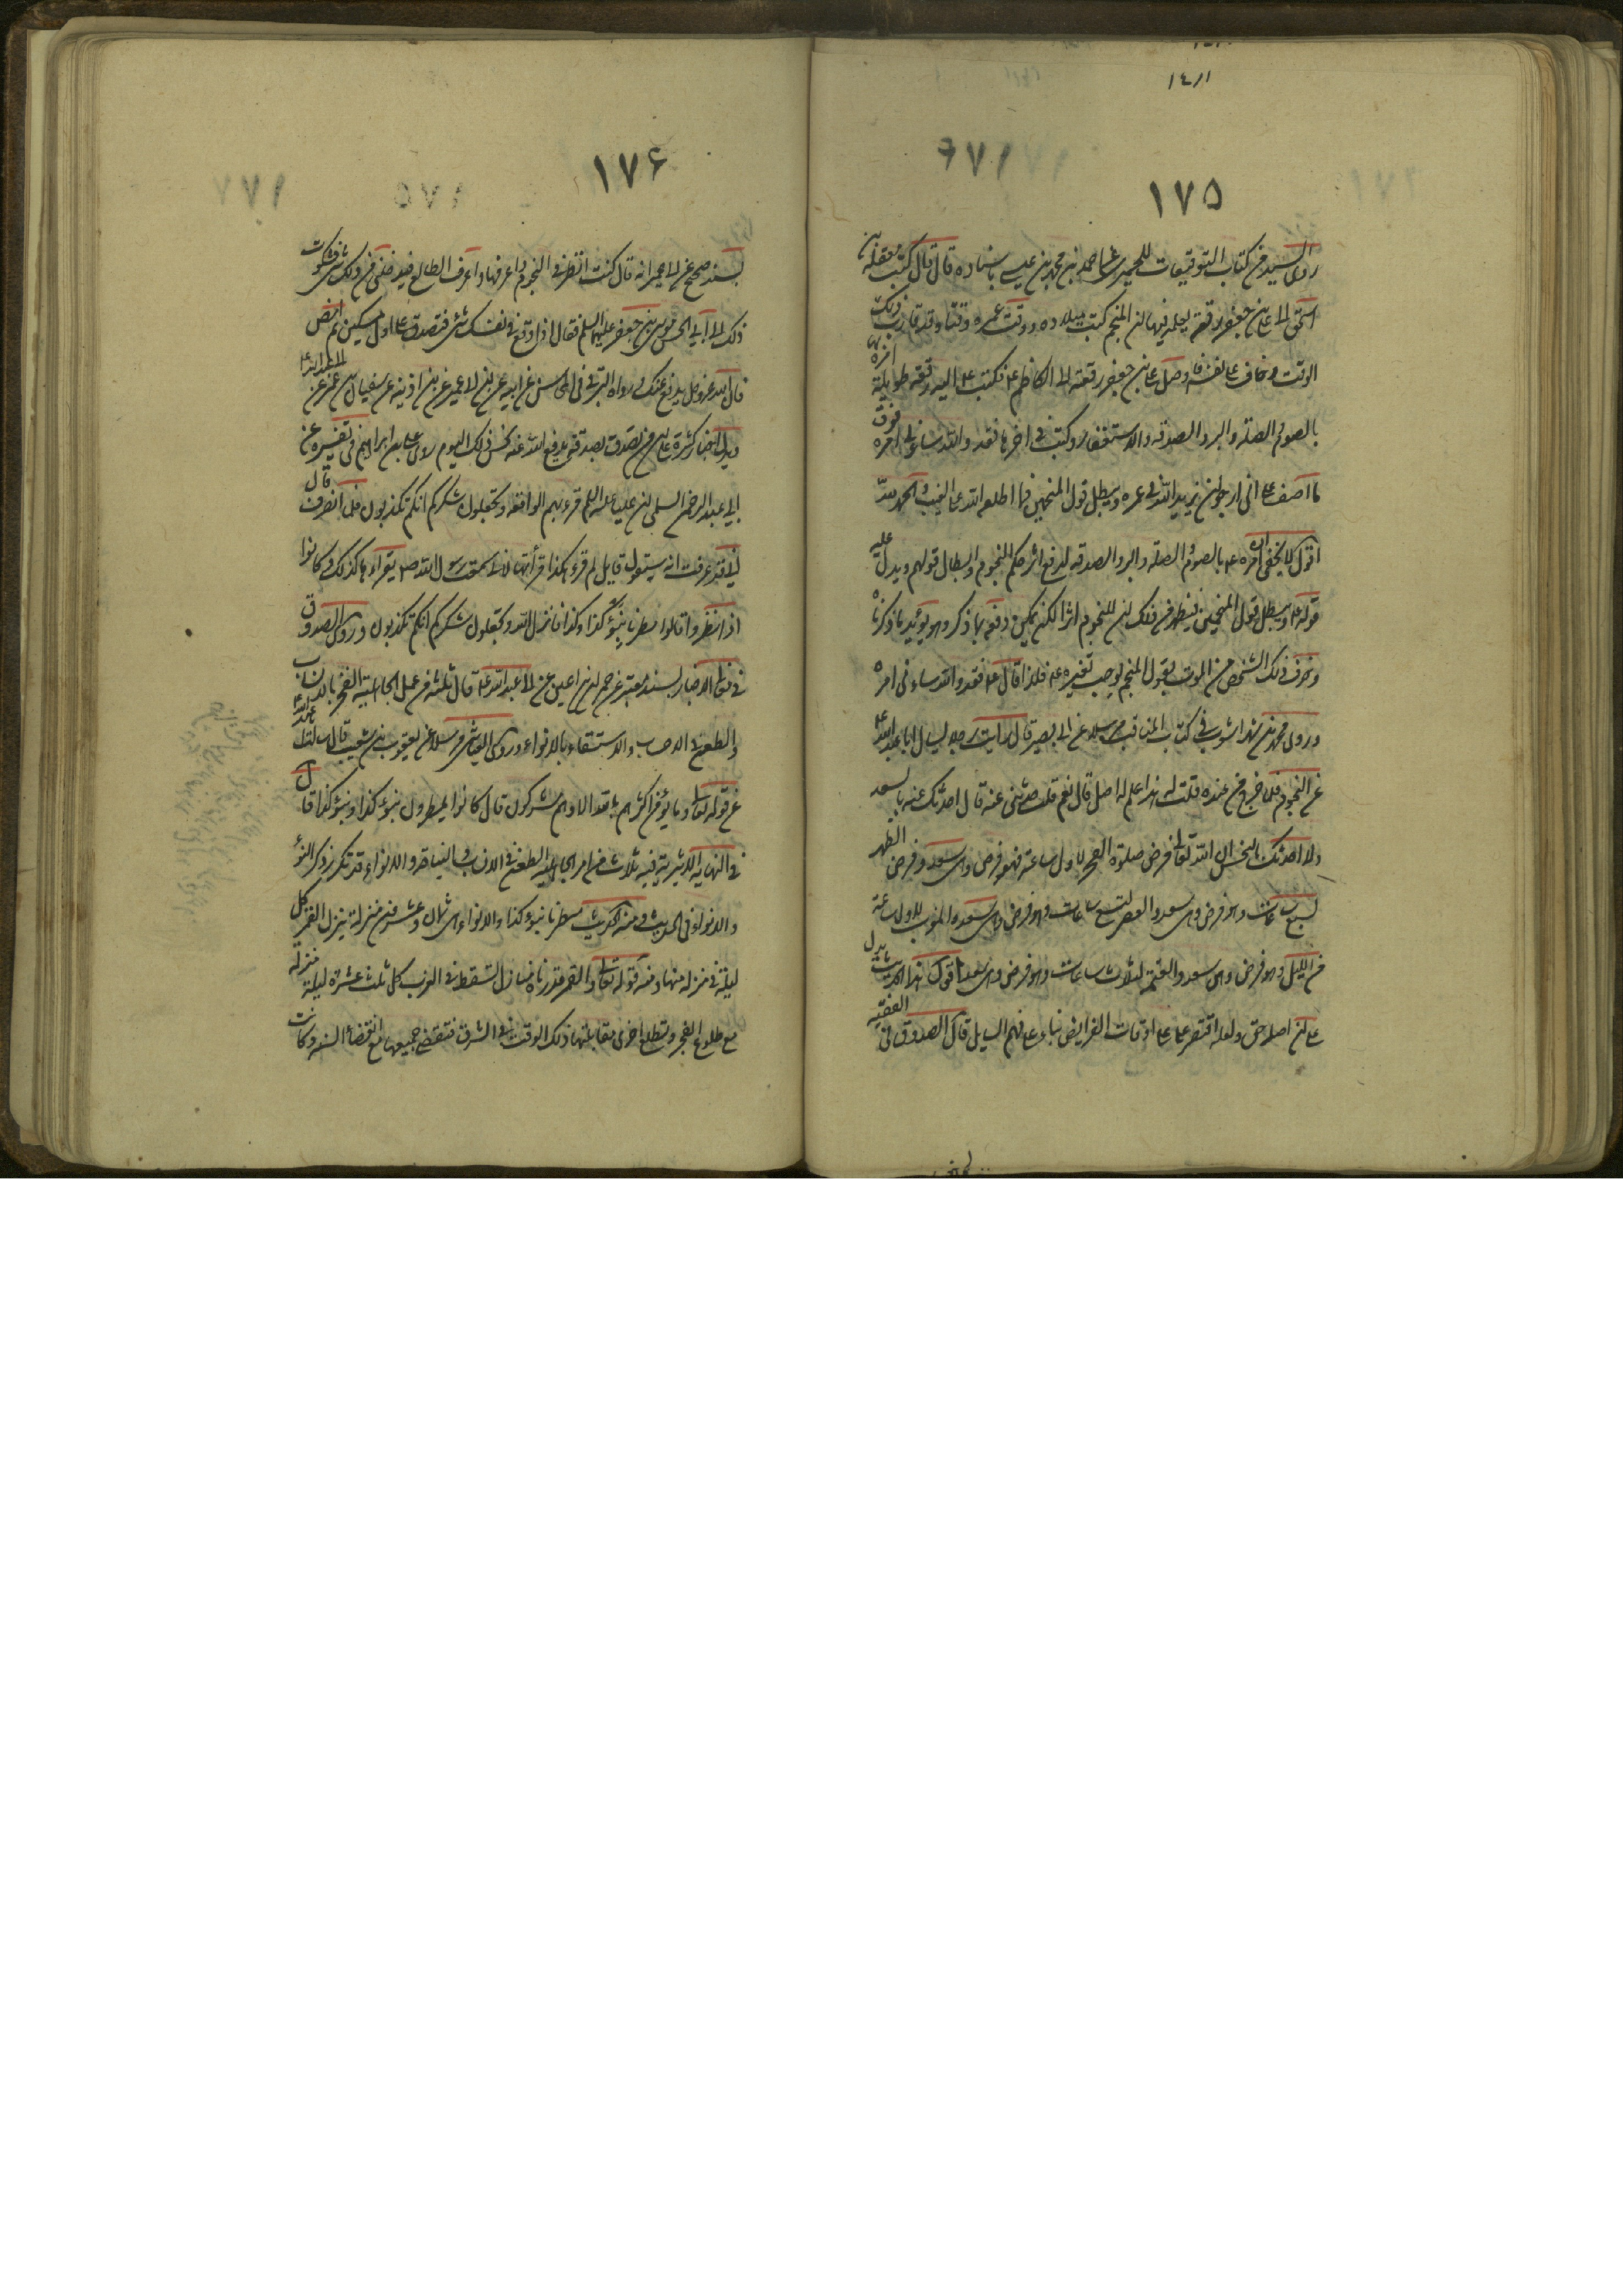 ١٤١١
١٧٥
روى السيد من كتاب التوقيعات للحميرى عن احمد بن محمد بن عيسى باسناده قال قال كتب معقلة بن
اسحق الى على بن جعفر رقعة يعلمه فيها ان المنجم كتب ميلاده ووقت عمره وقتا وقد تقارب ذلك
الوقت وخاف على نفسه فاوصل على بن جعفر رقعته الى الكاظم ع فكتب ع اليه رقعة طويلة امره
بالصوم والصلة والبر والصدقة والاستغفار وكتب فى اخرها فقد والله ساءنى امره فوق
ما اصف على انى ارجو ان يزيد الله فى عمره ويبطل قول المنجمين فما اطلعه الله على الغيب والحمد لله
اقول لا يخفى ان امره ع بالصوم والصلة والبر والصدقة لدفع اثر حكم النجوم وابطال قولهم ويدل عليه
قوله ع ويبطل قول المنجمين فيظهر من ذلك ان للنجوم اثرا لكن يمكن دفعه بما ذكر وهو يؤيد ما ذكرناه
وخوف ذلك الشخص من الموت بقول المنجم يوجب تغيره ع فلذا قال ع فقد والله ساءنى امره
وروى محمد بن شهراشوب فى كتاب المناقب مرسلا عن ابى بصير قال رايت رجلا يسال ابا عبد الله ع
عن النجوم فلما خرج من عنده قلت له هذا علم له اصل قال نعم قلت حدثنى عنه قال احدثك عنه بالسعد
ولا احدثك بالنحس ان الله تعالى فرض صلوة الفجر لاول ساعة فهو فرض وهى سعد وفرض الظهر
لسبع ساعات وهو فرض وهى سعد والعصر لتسع ساعات وهو فرض وهى سعد والمغرب لاول ساعة
من الليل وهو فرض وهى سعد والعتمة لثلاث ساعات وهو فرض وهى سعد اقول هذا الحديث يدل
على ان اصله حق ولعله اقتصر ع على اوقات الفرايض بناء على فهم السايل قال الصدوق فى الفقيه
١٧۶
بسند صحيح عن ابن ابى عمير انه قال كنت انظر فى النجوم واعرفها واعرف الطالع فيدخلنى من ذلك شئ فشكوت
ذلك الى ابى الحسن موسى بن جعفر عليهما السلم فقال اذا وقع فى نفسك شئ فتصدق على اول مسكين ثم امض
فان الله عز وجل يدفع عنك رواه البرقى فى المحاسن عن ابيه عن ابن ابى عمير عن ابن اذينه عن سفيان بن عمر عن
ويدل اخبار كثيرة على ان من تصدق بصدقة يدفع الله عنه نحس ذلك اليوم روى على بن ابراهيم فى تفسيره عن
ابى عبد الرحمن السلمى ان عليا عليه السلم قرء بهم الواقعة وتجعلون شكركم انكم تكذبون فلما انصرف قال
انى قد عرفت انه سيقول قايل لم قرء هكذا قرأتها لانى سمعت رسول الله ص يقرأها كذلك وكانوا
اذا مطروا قالوا مطرنا بنوء كذا وكذا فانزل الله وتجعلون شكركم انكم تكذبون وروى الصدوق
فى معانى الاخبار بسند معتبر عن حمران بن اعين عن ابى عبد الله ع قال ثلثة من عمل الجاهلية الفخر بالانساب
والطعن فى الاحساب والاستسقاء بالانواء وروى العياشى مرسلا عن يعقوب بن شعيب قال سالت ابا عبد الله ع
عن قوله تعالى وما يؤمن اكثرهم بالله الا وهم مشركون قال كانوا يقولون نمطر بنوء كذا وبنوء كذا قال
فى النهاية الاثيرية فيه ثلاث من امر الجاهلية الطعن فى الانساب والنياحة والانواء قد تكرر ذكر النوء
والانواء فى الحديث ومنه الحديث مطرنا بنوء كذا والانواء هى ثمان وعشرون منزلة ينزل القمر كل
ليلة فى منزلة منها ومنه قوله تعالى والقمر قدرناه منازل تسقط فى الغرب كل ثلث عشرة ليلة منزلة
مع طلوع الفجر وتطلع اخرى مقابلتها ذلك الوقت فى الشرق فتنقضى جميعها مع انقضاء السنة وكانت